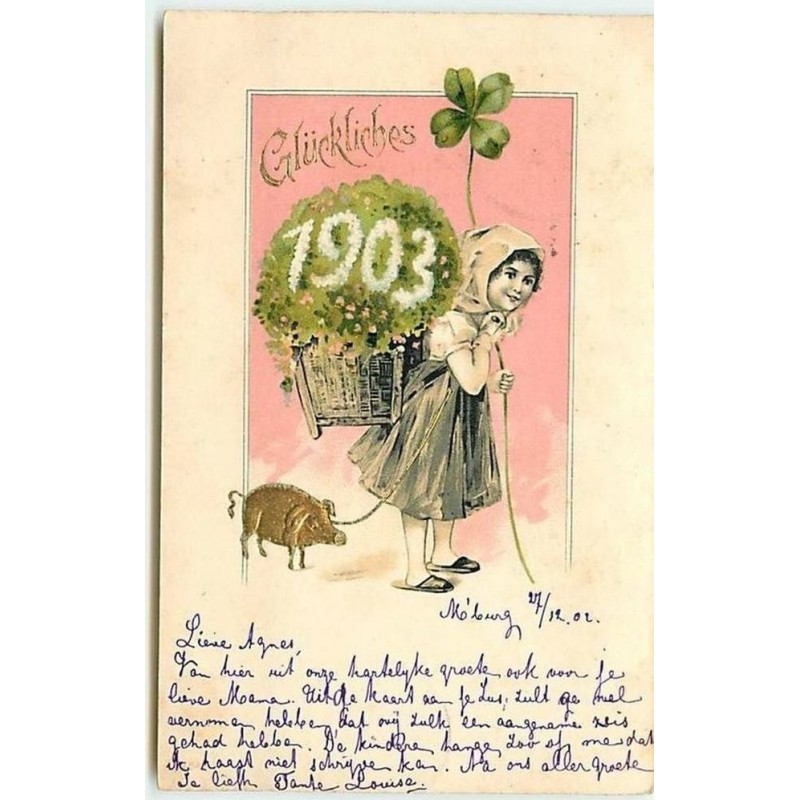 Glückliches
1903
M'burg 27/12.02.
Lieve Agnes,
Van hier uit onze hartelyke groete ook voor je
lieve Mama. Uit de kaart aan je Zus, zult ge wel
vernomen hebben dat wij zulk een aangename reis
gehad hebben. De kindere hange zoo op me dat
ik haast niet schryve kan. Na ons aller groete
Je liefh. Tante Louise.